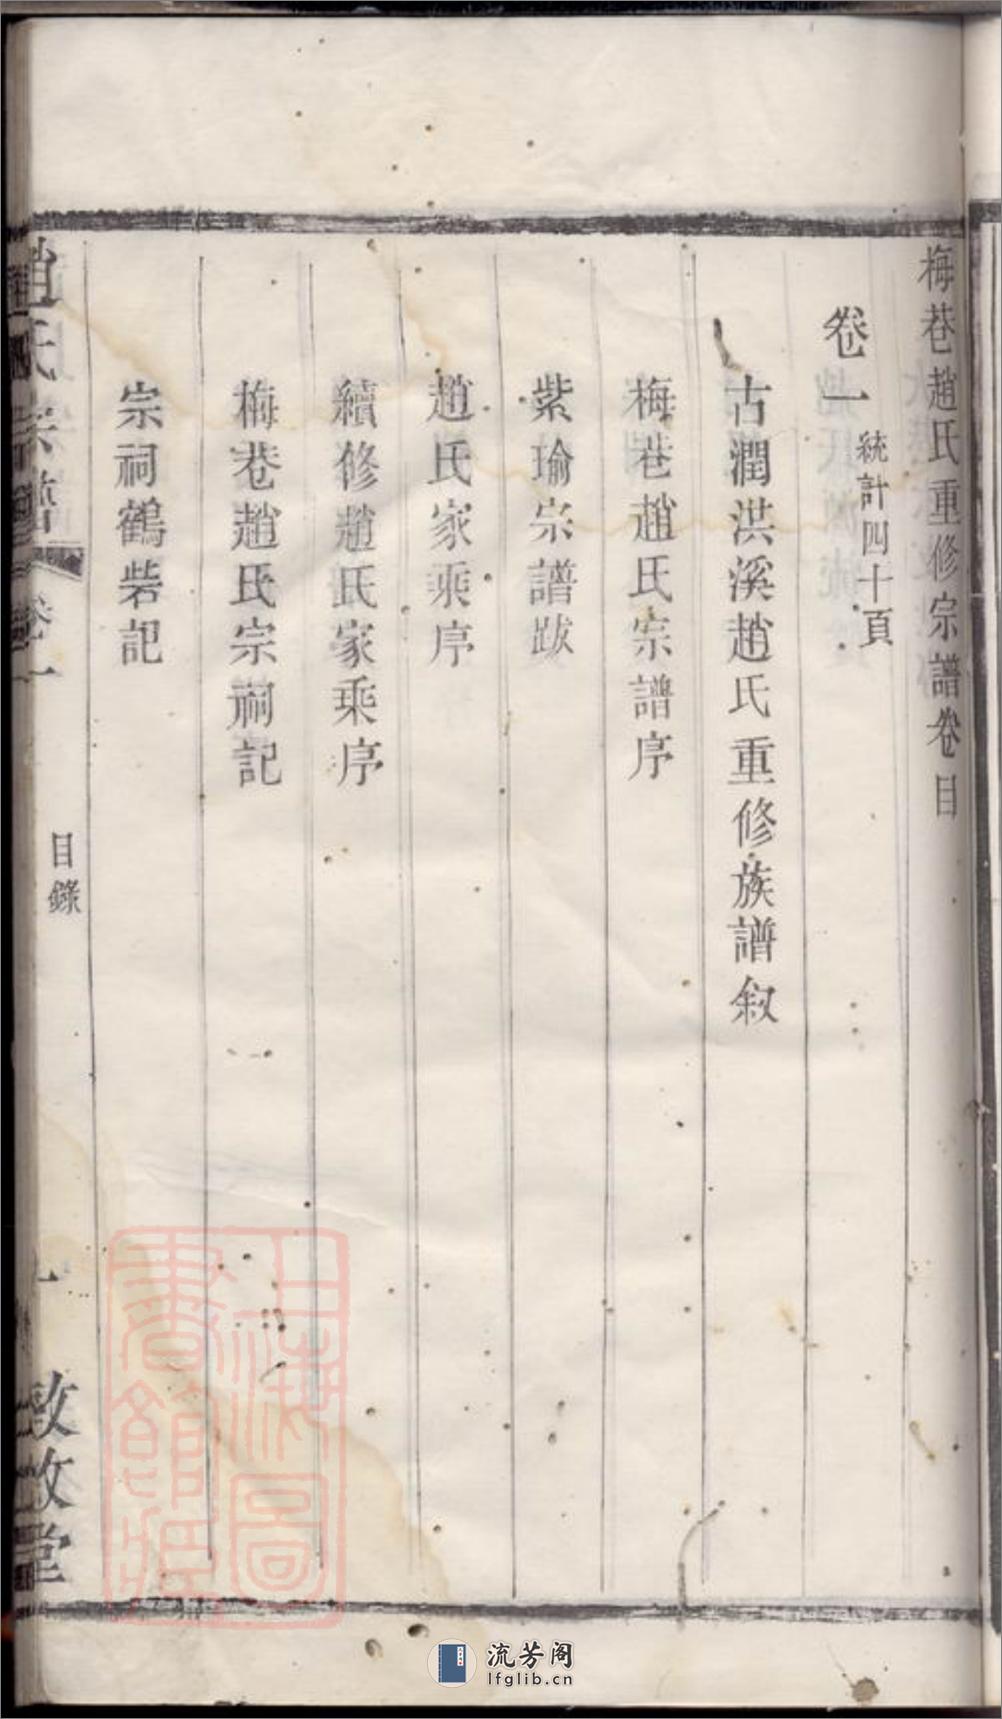 梅巷趙氏重修宗譜卷目
卷一 統計四十頁
古潤洪溪趙氏重修族譜叙
梅巷趙氏宗譜序
紫瑜宗譜跋
趙氏家乘序
續修趙氏家乘序
梅巷趙氏宗祠記
宗祠鶴砦記
趙氏宗譜 卷一 目錄 一
上海圖書館藏
流芳阁
lfglib.cn